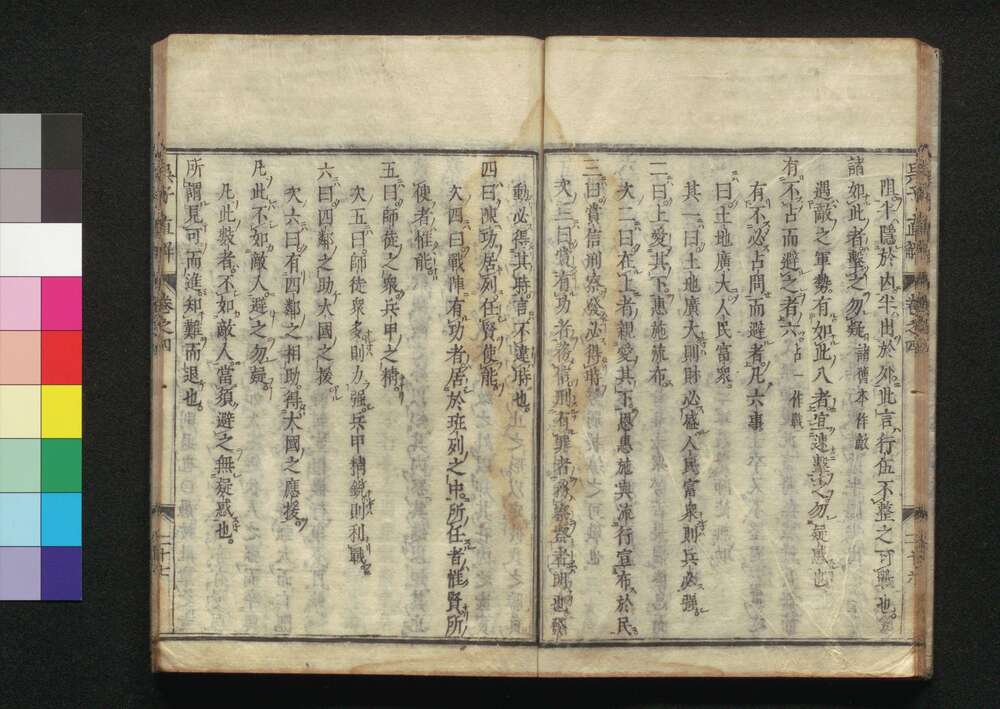 阻半隱於內半出於外此言行伍不整之可擊也
諸如此者擊之勿疑 諸舊本作敵
遇敵之軍勢有如此八者宜速擊之勿疑惑也
有不占而避之者六 占一作戰
有不必占問而避者凡六事
一曰土地廣大人民富衆
其一曰土地廣大則財必盛人民富衆則兵必强
二曰上愛其下惠施流布
次二曰在上者親愛其下恩惠施與流行宣布於民
三曰賞信刑察發必得時
次三曰賞有功者務信刑有罪者務察察者明也
動必得其時言不違時也
四曰陳功居列任賢使能
次四曰戰陣有功者居於班列之中所任者惟賢所
使者惟能
五曰師徒之衆兵甲之精
次五曰師徒衆多則力强兵甲精銳則利戰
六曰四鄰之助大國之援
次六曰有四鄰之相助得大國之應援
凡此不如敵人避之勿疑
凡此數者不如敵人當須避之無疑惑也
所謂見可而進知難而退也
吳子直解 卷之四 二十七